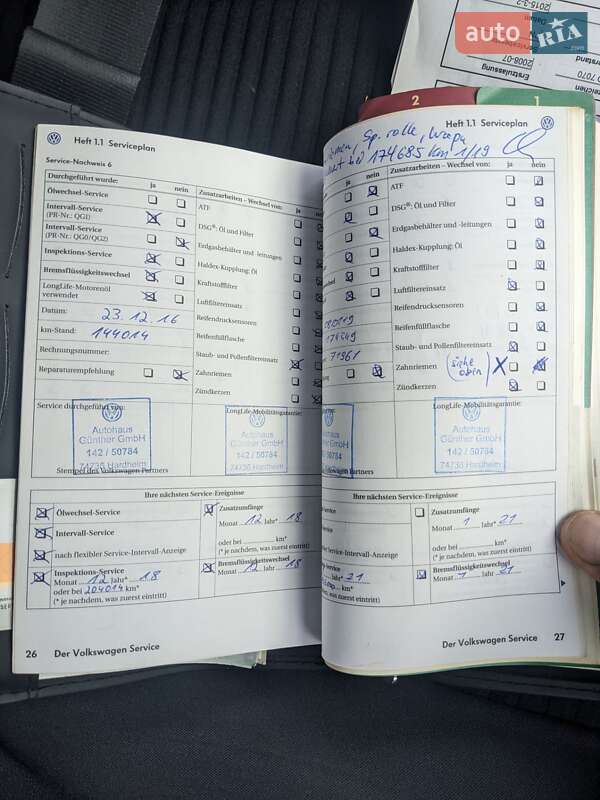 auto RIA.com
2015-3-2
Datum
2008-07
Erstzulassung
70 7070
2
1
Heft 1.1 Serviceplan
Service-Nachweis 6
Durchgeführt wurde: ja nein
Zusatzarbeiten – Wechsel von: ja nein
Ölwechsel-Service
ATF
Intervall-Service
(PR-Nr.: QG1)
DSG®: Öl und Filter
Intervall-Service
(PR-Nr.: QG0/QG2)
Erdgasbehälter und -leitungen
Inspektions-Service
Haldex-Kupplung: Öl
Bremsflüssigkeitswechsel
Kraftstofffilter
LongLife-Motorenöl
verwendet
Luftfiltereinsatz
Datum: 23.12.16
Reifendrucksensoren
km-Stand: 144014
Reifenfüllflasche
Rechnungsnummer:
Staub- und Pollenfiltereinsatz
Reparaturempfehlung
Zahnriemen
Zündkerzen
Service durchgeführt von:
LongLife-Mobilitätsgarantie:
Autohaus
Günther GmbH
142 / 50784
74736 Hardheim
Stempel des Volkswagen Partners
Ihre nächsten Service-Ereignisse
Ölwechsel-Service
Zusatzumfänge
Monat 12 Jahr 18
Intervall-Service
oder bei km*
(* je nachdem, was zuerst eintritt)
nach flexibler Service-Intervall-Anzeige
Inspektions-Service
Monat 12 Jahr* 18
oder bei 204014 km*
(* je nachdem, was zuerst eintritt)
Bremsflüssigkeitswechsel
Monat 12 Jahr 18
26 Der Volkswagen Service
Heft 1.1 Serviceplan
Sp. rolle,
bei 174685 km 1/19
nein
Zusatzarbeiten – Wechsel von: ja nein
ATF
DSG®: Öl und Filter
Erdgasbehälter und -leitungen
Haldex-Kupplung: Öl
Kraftstofffilter
Luftfiltereinsatz
Reifendrucksensoren
Reifenfüllflasche
Staub- und Pollenfiltereinsatz
71961
Zahnriemen (siehe oben) X
Zündkerzen
LongLife-Mobilitätsgarantie:
GmbH
50784
Hardheim
Autohaus
Günther GmbH
142 / 50784
74736 Hardheim
Volkswagen Partners
Ihre nächsten Service-Ereignisse
Service
Zusatzumfänge
Monat 1 Jahr 21
Service
oder bei km*
(* je nachdem, was zuerst eintritt)
Service-Intervall-Anzeige
Service
Jahr* 21
km*
was zuerst eintritt)
Bremsflüssigkeitswechsel
Monat 1 Jahr 21
Der Volkswagen Service 27